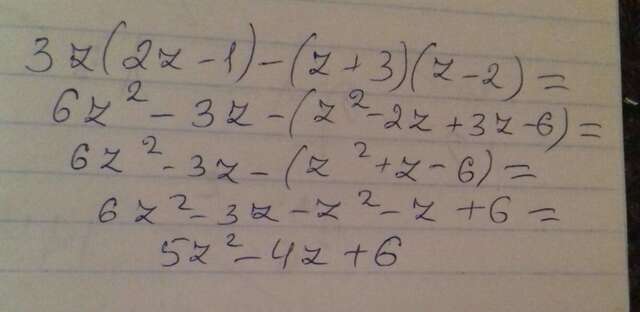 3z(2z-1)-(z+3)(z-2)=
6z²-3z-(z²-2z+3z-6)=
6z²-3z-(z²+z-6)=
6z²-3z-z²-z+6=
5z²-4z+6